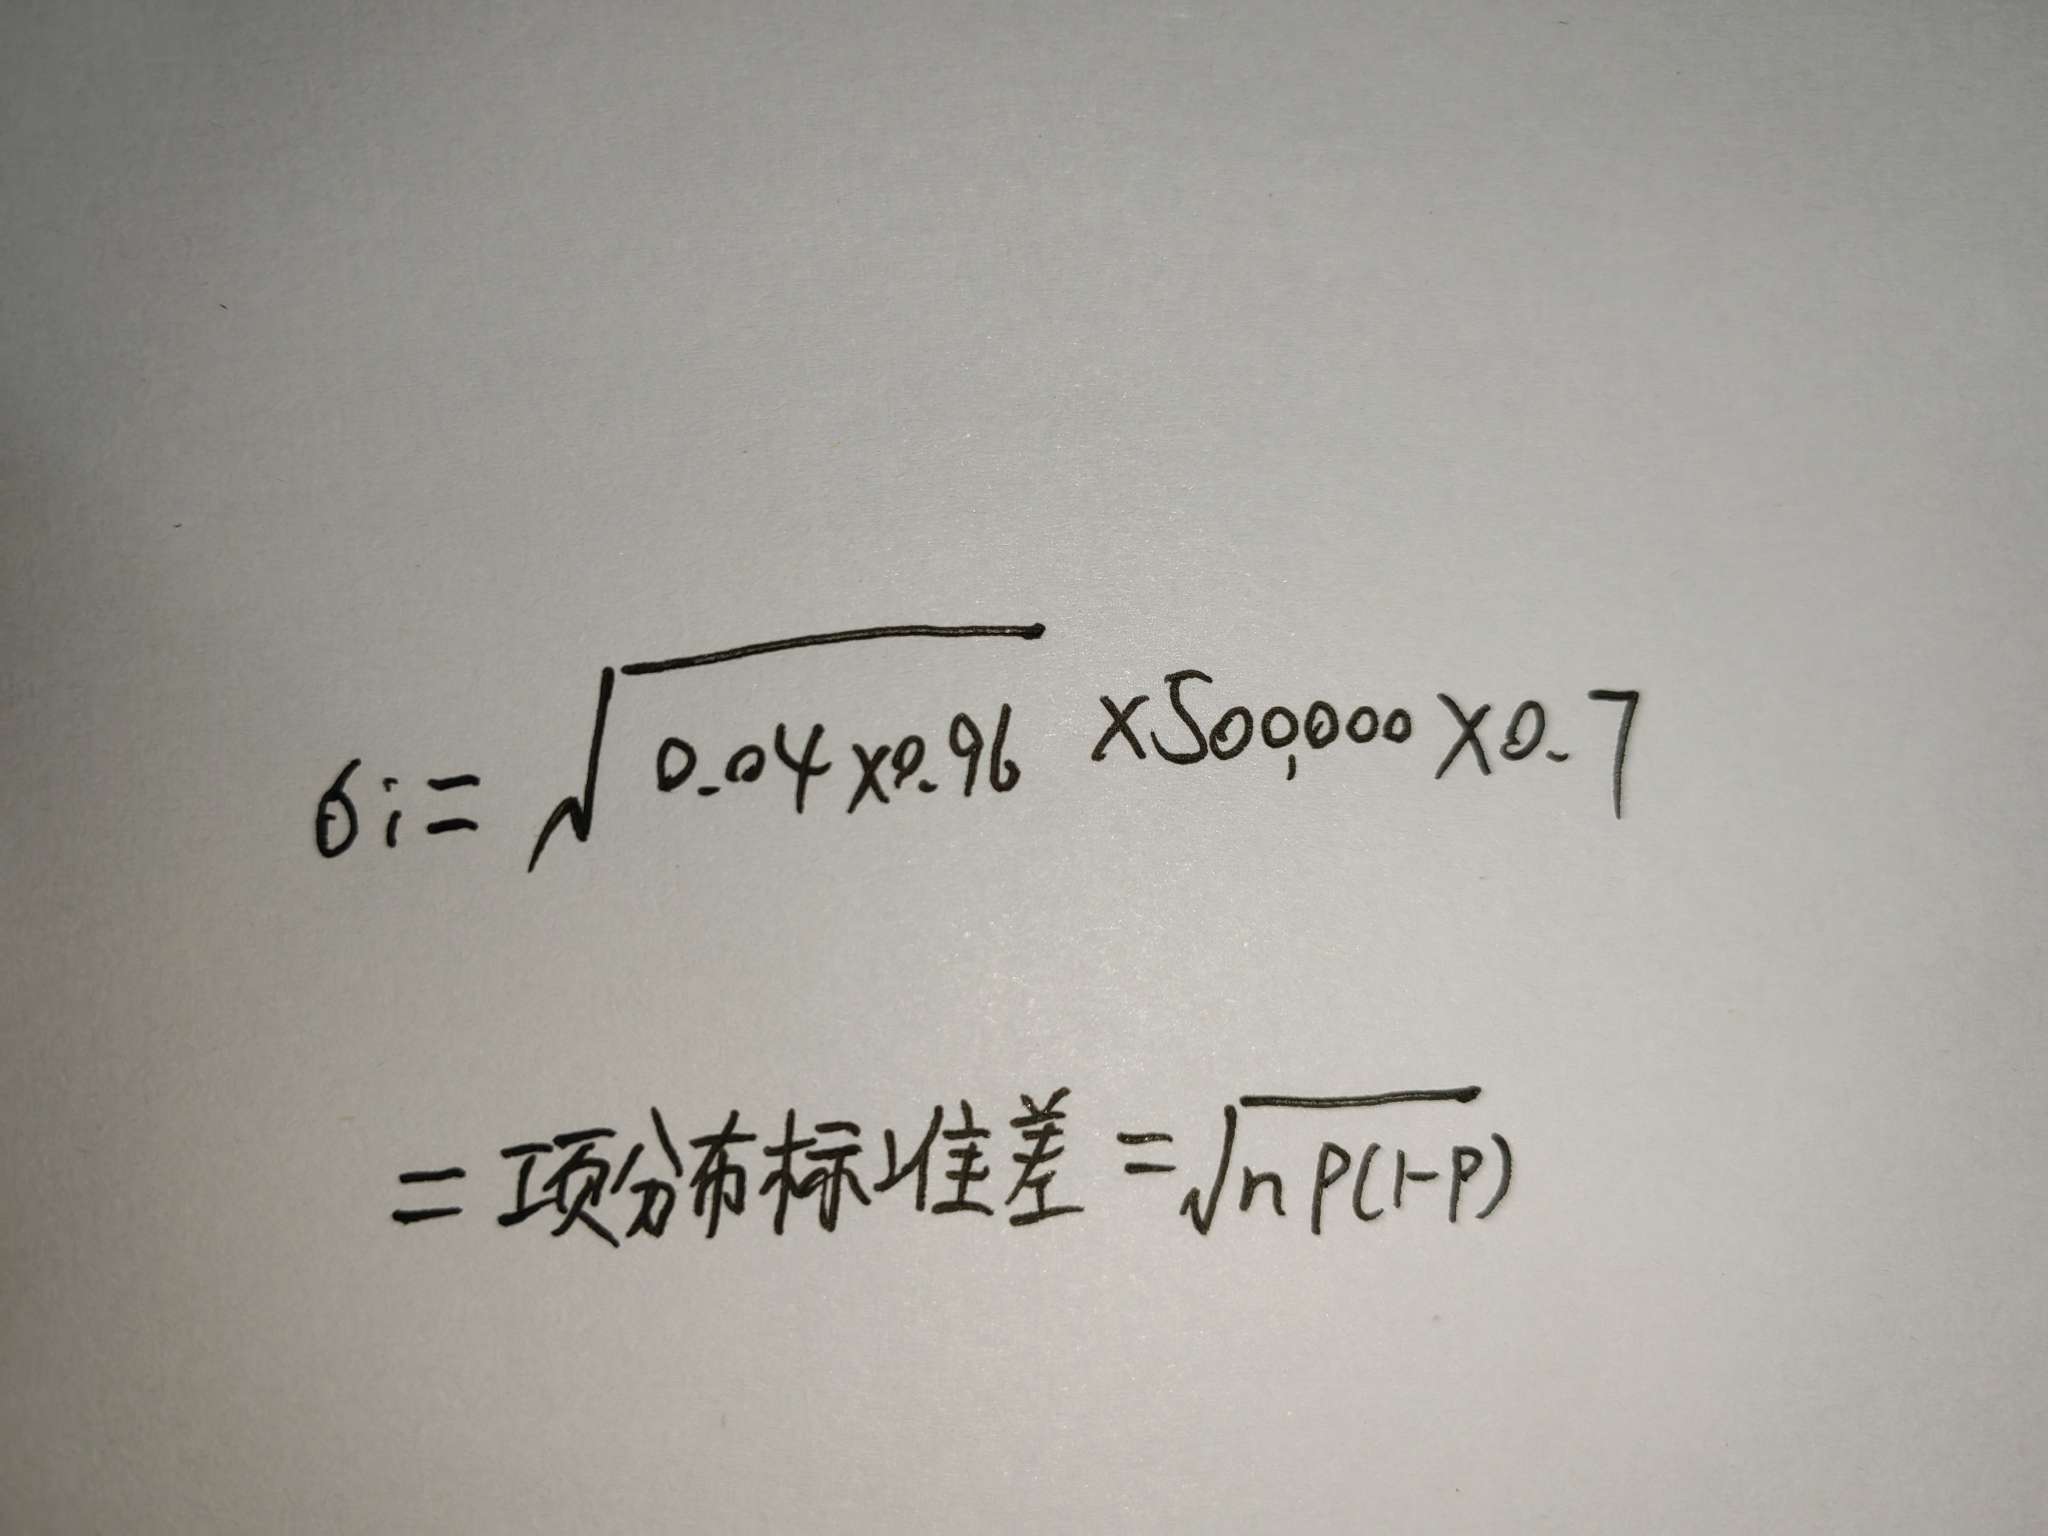 σi=√0.04×0.96 ×500,000×0.7
=项分布标准差=√np(1-p)